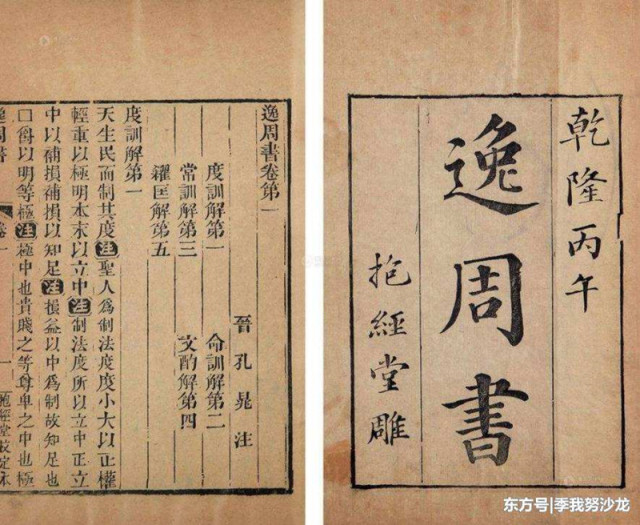 乾隆丙午
逸周書
抱經堂雕
逸周書卷第一
晉 孔晁 注
度訓解第一 命訓解第二
常訓解第三 文酌解第四
糴匡解第五
度訓解第一
天生民而制其度注聖人爲制法度度小大以正權
輕重以極明本末以立中注制法度所以立中正立
中以補損補損以知足注損益以中爲制故知足也
□爵以明等極注極中也貴賤之等尊卑之中也極
逸周書 卷一 一 抱經堂校定本
东方号|季我努沙龙